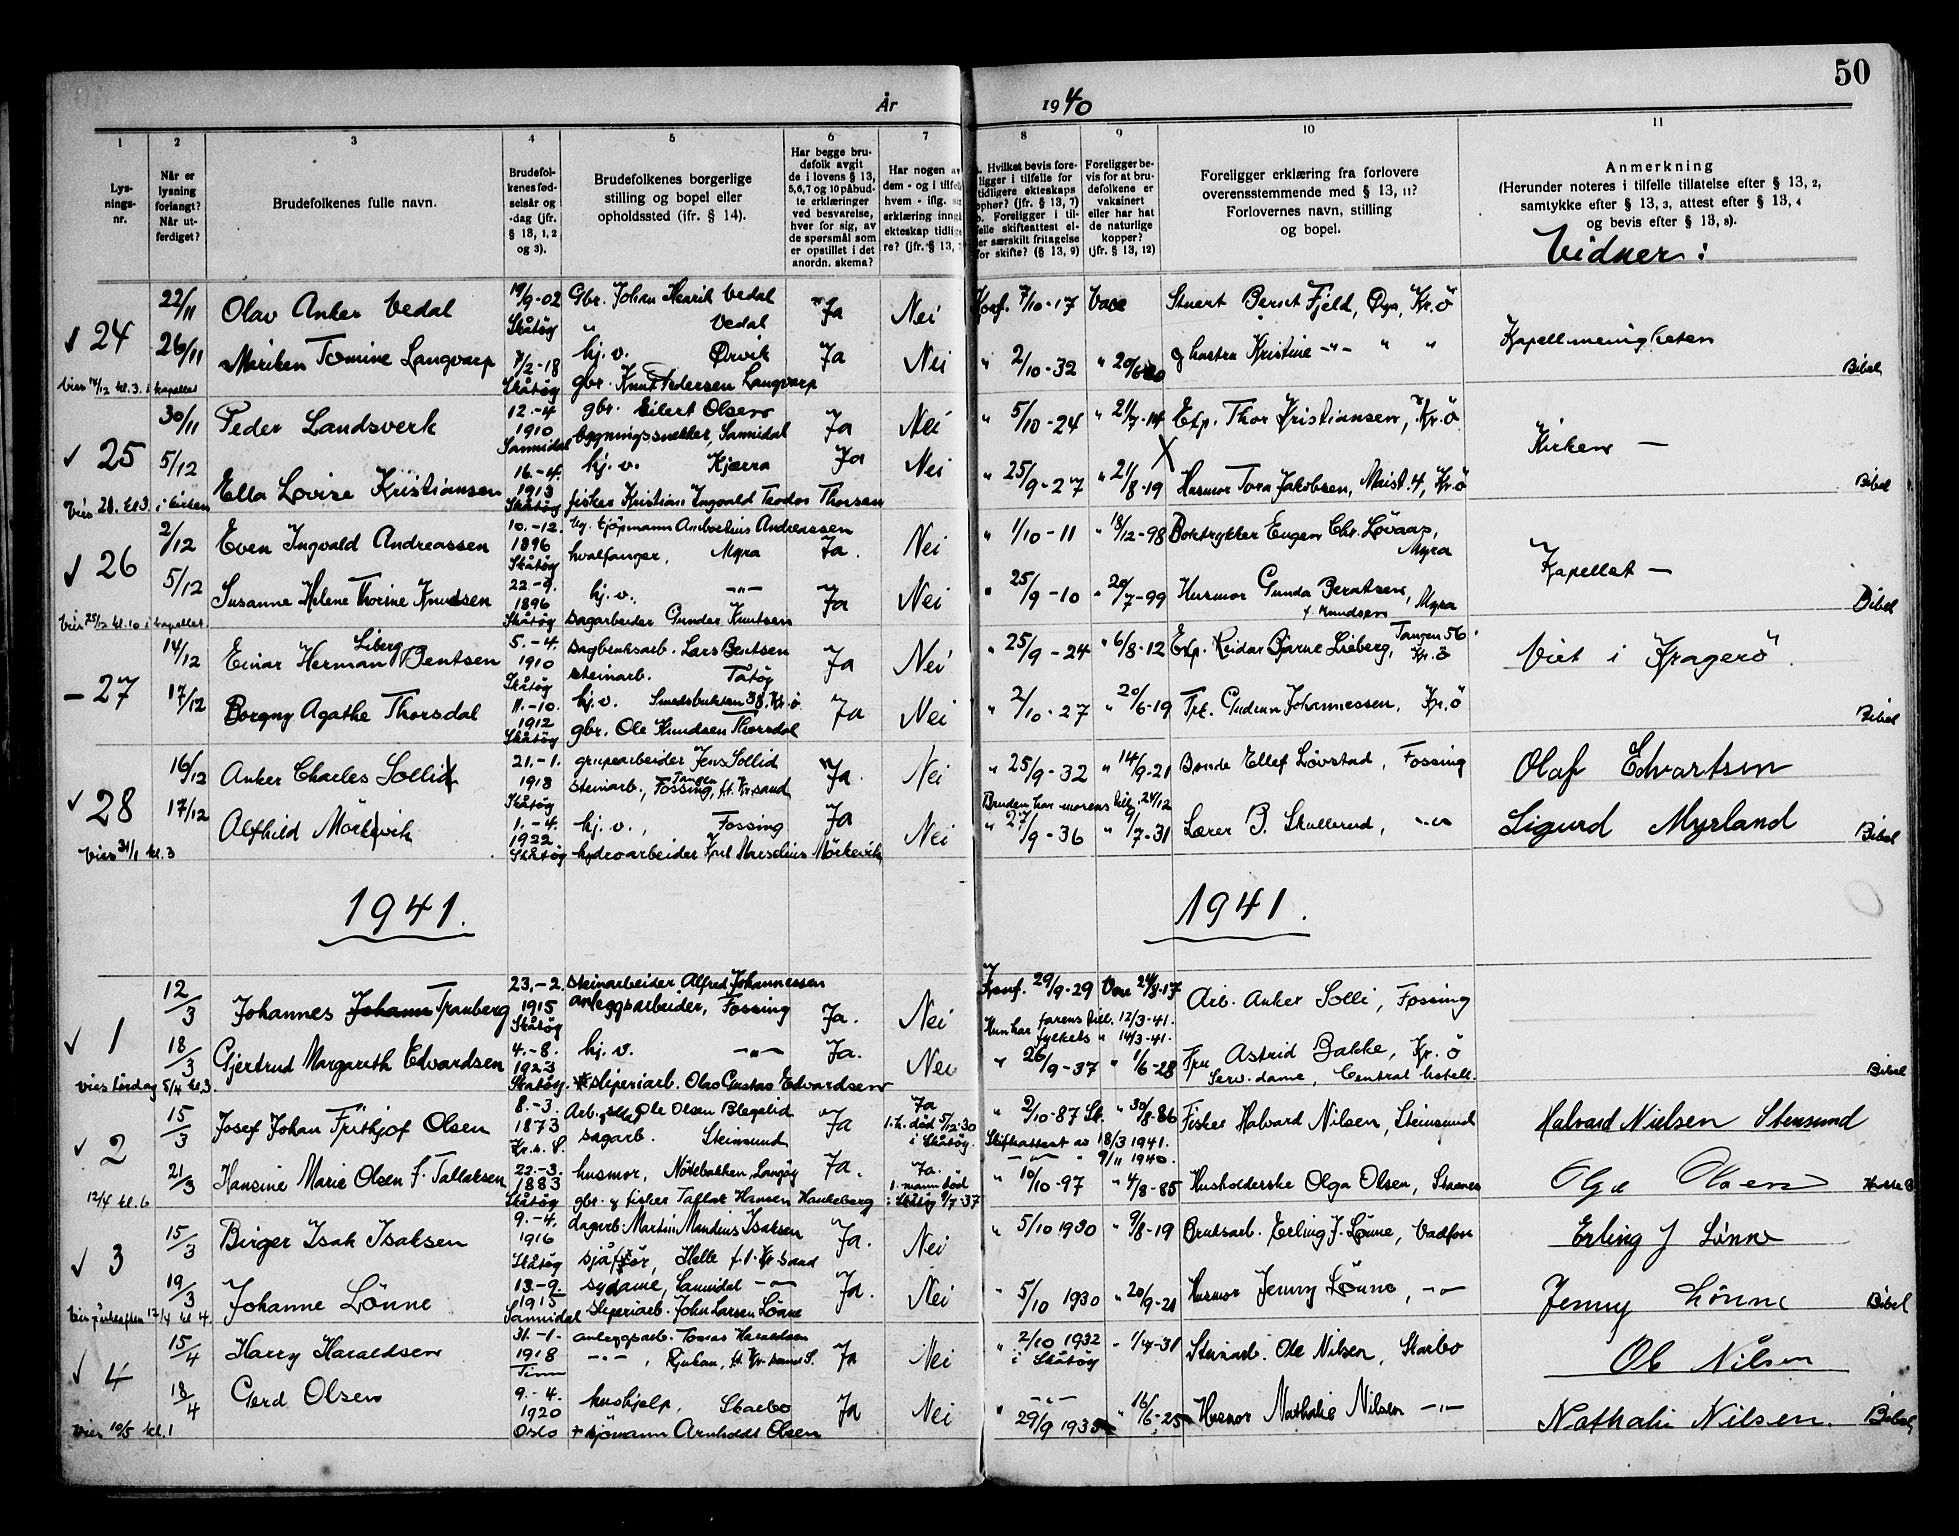 50
År 1940
1 2 3 4 5 6 7 8 9 10 11
Lys-
nings-
nr.
Når er
lysning
forlangt?
Når ut-
ferdiget?
Brudefolkenes fulle navn.
Brudefol-
kenes fød-
selsår og
-dag (jfr.
§ 13, 1, 2
og 3).
Brudefolkenes borgerlige
stilling og bopel eller
opholdssted (ifr. § 14).
Har begge bru-
defolk avgit
de i lovens § 13,
5,6,7 og 10 påbud-
te erklæringer
ved besvarelse,
hver for sig, av
de spørsmål som
er opstillet i det
anordn. skema?
Har nogen av
dem - og i tilfelle
hvem - iflg. sin
erklæring inngått
ekteskap tidlige-
re? (jfr. § 13,
Hvilket bevis fore-
ligger i tilfelle for
tidligere ekteskaps
ophør? (jfr. § 13, 7)
b. Foreligger i til-
felle skifteattest el-
ler særskilt fritagelse
for skifte? (§ 13, 9)
Foreligger be-
vis for at bru-
defolkene er
vaksinert
eller har hat
de naturlige
kopper?
(jfr. § 13, 12)
Foreligger erklæring fra forlovere
overensstemmende med § 13, 11?
Forlovernes navn, stilling
og bopel.
Anmerkning
(Herunder noteres i tilfelle tillatelse efter § 13, 2,
samtykke efter § 13, 3, attest efter § 13, 4
og bevis efter § 13, 8).
Vidner:
24 22/11 Olav Anker Vedal 19/9-02 Skåtøy Gbr. Johan Henrik Vedal
" Vedal Ja Nei Konf. 7/10-17 Vacc Stuert Bernt Fjeld, Øya, Kr.ö
26/11 Mariken Tomine Langvarp 7/2-18 Skåtöy hj. v. Ørvik Ja Nei " 2/10-32 " og hustru Kristine -"- " " Kapellmenigheten
gbr. Knut Pedersen Langvarp
Vies 14/12 kl. 3. i kapellet Bibel
25 30/11 Peder Landsverk 12.-4 1910 Sannidal gbr. Eilert Olsen
bygningssnekker, Sannidal Ja Nei " 5/10-24 " 21/7-14 Exp. Thor Kristiansen, Kr.ö
5/12 Ella Lovise Kristiansen 16.-4. 1913 Skåtöy hj. v. Kjærra Ja Nei " 25/9-27 " 21/8-19 Husmor Tora Jakobsen, Kr.ö Kirken —
fisker Kristian Ingvald Teodor Thorsen
Vies 28. kl 3. i kirken Bibel
26 2/12 Even Ingvald Andreassen 10.-12. 1896 Skåtöy kjöpmann Andreassen
hvalfanger, Myra Ja. Nei " 1/10-11 " 13/12-98 Boktrykker Eugen Chr. Lövaas, Myra
5/12 Susanne Helene Thorine Knudsen 22.-9. 1896 Skåtöy hj. v. -"- Ja Nei " 25/9-10 " 20/7-99 Husmor Gunda Berntsen, f. Knudsen Myra Kapellet —
sagarbeider Gunder Knutsen
Vies 25/12 kl. 10 i kapellet Bibel
27 14/12 Einar Herman Liberg Bentsen 5.-4. 1910 Skåtöy sagbruksarb. Lars Bentsen
steinarb. Tåtöy Ja Nei " 25/9-24 " 6/8-12 Exp. Reidar Bjarne Lieberg, Tangen 56 Kr.ö Viet i Kragerö.
17/12 Borgny Agathe Thorsdal 11.-10. 1912 Skåtöy hj. v. Smedsbukten 38, Kr.ö Ja Nei " 2/10-27 " 20/6-19 Frk. Gudrun Johannessen, Kr.ö
gbr. Ole Knudsen Thorsdal
Bibel
28 16/12 Anker Charles Sollid 21.-1. 1918 Skåtöy grupearbeider Jens Sollid
steinarb., Tangen Fossing, st. Kr.sand Ja. Nei " 25/9-32 " 14/9-21 Bonde Ellef Lövstad, Fossing Olaf Edvartsen
Bruden har morens till. 24/12
17/12 Alfhild Mörkevik 1.-4. 1922 Skåtöy hj. v., Fossing Ja Nei " 27/9-36 " 9/7-31 Lærer B. Skullerud, -"- Sigurd Myrland
hydroarbeider Karl Marselius Mörkevik
Vies 31/1 kl. 3 Bibel
1941. 1941.
1 12/3 Johannes Tranberg 23.-2. 1915 Skåtöy steinarbeider Alfred Johannessen
anleggsarbeider, Fossing Ja. Nei Konf. 29/9-29 Vac 24/8-17 Arb. Anker Solli, Fossing
Hun har farens till. 12/3-41.
fylkets " 14/3-41.
18/3 Gjertrud Margareth Edvardsen 4.-8. 1923 Skåtöy. hj. v. -"- Ja. Nei " 26/9-37 " 1/6-28 Fru Astrid Bakke, Kr.ö
Serv.dame, Central hotell.
sliperiarb. Olav Gustav Edvardsen
vies lördag 5/4 kl. 3. Bibel
2 15/3 Josef Johan Frithjof Olsen 8.-3. 1873 Kr.s. S. Arb. Ole Olsen
sagarb. Steinsund Ja Ja 1. h. död 5/12-30 i Skåtöy. " 2/10-87 " 30/8-86 Fisker Halvard Nilsen, Steinsund Halvard Nielsen Stensund
Skifteattest av 18/3 1941.
-"- " 9/11 1940.
21/3 Hansine Marie Olsen f. Tallaksen 22.-3. 1883 Skåtöy husmor, Langöy Ja. Ja. 1. mann död i Skåtöy 9/7-37 " 10/10-97 " 4/8-85 Husholderske Olga Olsen, Olga Olsen
gbr. & fisker Tallak Hansen
12/4 kl. 6
3 15/3 Birger Isak Isaksen 9.-4. 1916 Skåtöy dagarb. Martin Mandius Isaksen
sjåför, Helle f. t. Kr.sand Ja. Nei " 5/10 1930 " 9/8-19 Bruksarb. Erling J. Lönne, Vadfoss Erling J Lönne
19/3 Johanne Lönne 13.-9 1915 Sannidal sydame, Sannidal -"- Ja. Nei " 5/10 1930 " 20/9-21 Husmor Jenny Lönne, -"- Jenny Lönne
sliperiarb. John Larsen Lönne
Vies påskeaften 12/4 kl 4. Bibel
4 15/4 Harry Haraldsen 31.-1. 1918 Tinn anleggsarb. Tomas Haraldsen
-"-, Rjukan, st. Kr.sand S. Ja Nei " 2/10 1932 i Skåtöy " 1/4-31 Steinarb. Ole Nilsen, Starbo Ole Nilsen
18/4 Gerd Olsen 9.-4. 1920 Oslo hushjelp, Starbo Ja Nei " -"- 29/9 1935 " 16/6-25 Husmor Nathalie Nilsen -"- Nathalie Nilsen.
+ sjömann Arnholdt Olsen
Vies 10/5 kl. 1 Bibel